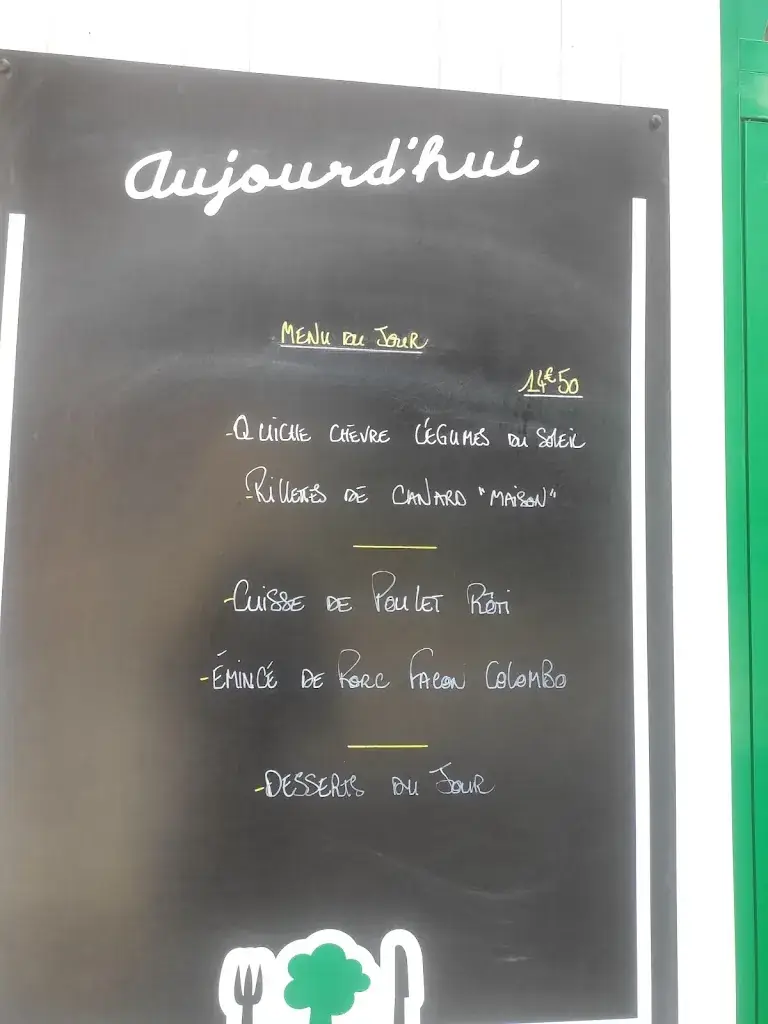 aujourd'hui
MENU DU JOUR
14€50
-QUICHE CHÈVRE LÉGUMES DU SOLEIL
-RILLETTES DE CANARD "MAISON"
-CUISSE DE POULET RÔTI
-ÉMINCÉ DE PORC FAÇON COLOMBO
-DESSERTS DU JOUR